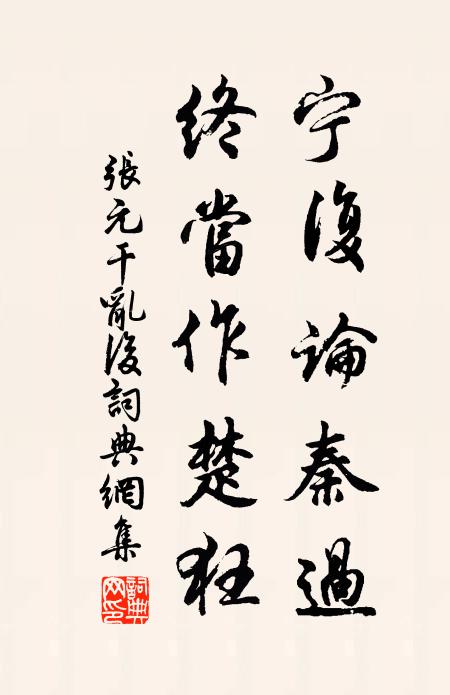 宁復論秦過
終當作楚狂
張元干亂後詞典網集
詞典網印